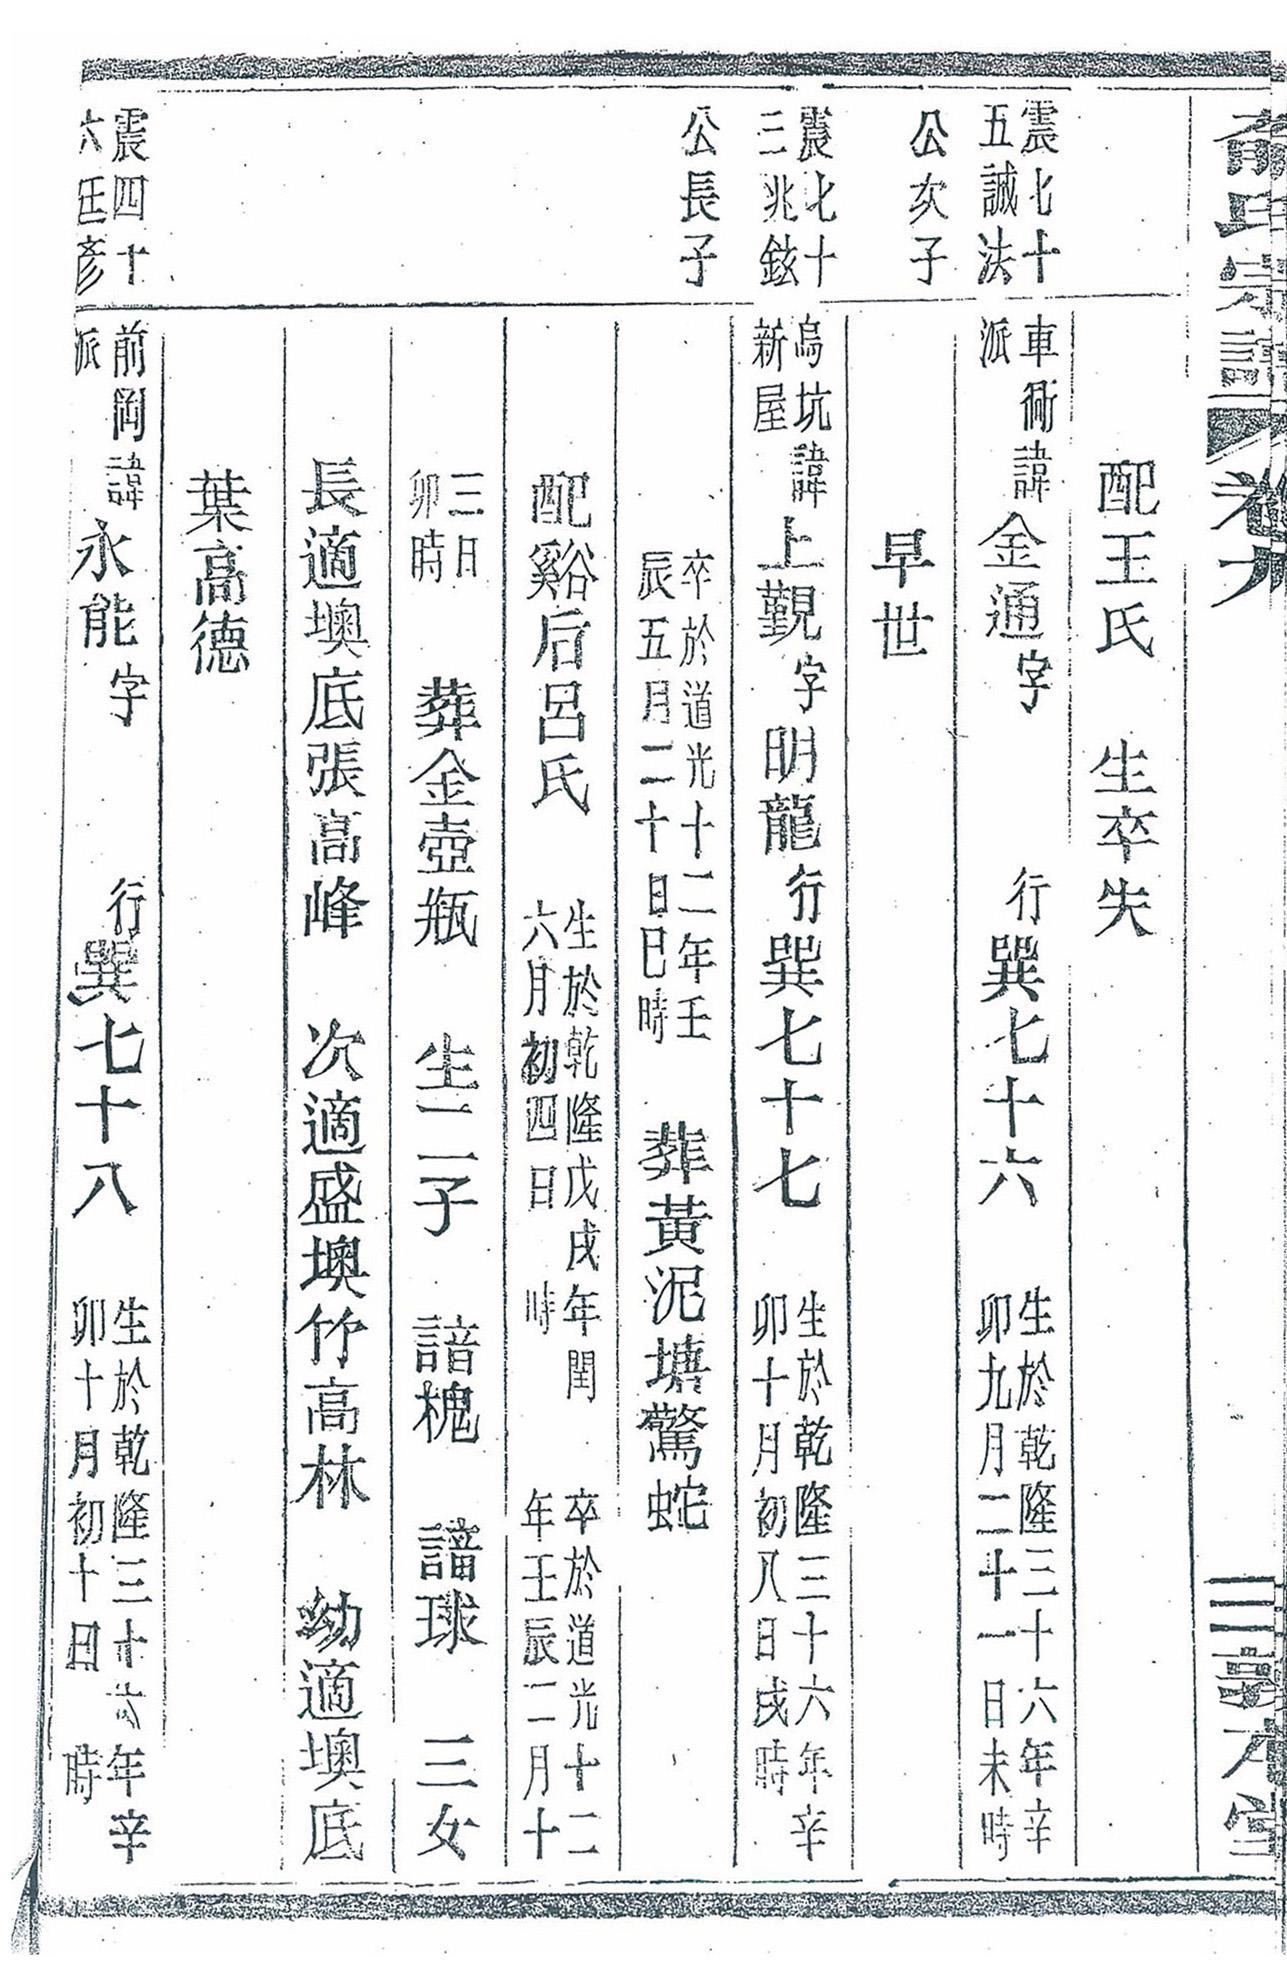 俞氏宗譜 卷九 三 敦本堂
配王氏 生卒失
震七十
五誠法
車衕
派
諱金通字 行巽七十六 生於乾隆三十六年辛
卯九月二十一日未時
公次子
早世
震七十
三兆鉉
烏坑
新屋
諱上觀字明龍行巽七十七 生於乾隆三十六年辛
卯十月初八日戌時
公長子
卒於道光十二年壬
辰五月二十日巳時
葬黃泥塘驚蛇
配谿后呂氏 生於乾隆戊戌年閏
六月初四日 時
卒於道光十二
年壬辰二月十
三日
卯時
葬金壺瓶 生二子 諳槐 諳球 三女
長適墺底張高峰 次適盛墺竹高林 幼適墺底
葉高德
震四十
六廷彥
前岡
派
諱永能字 行巽七十八 生於乾隆三十六年辛
卯十月初十日 時